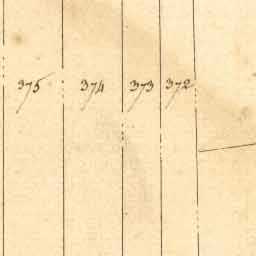 375 374 373 372